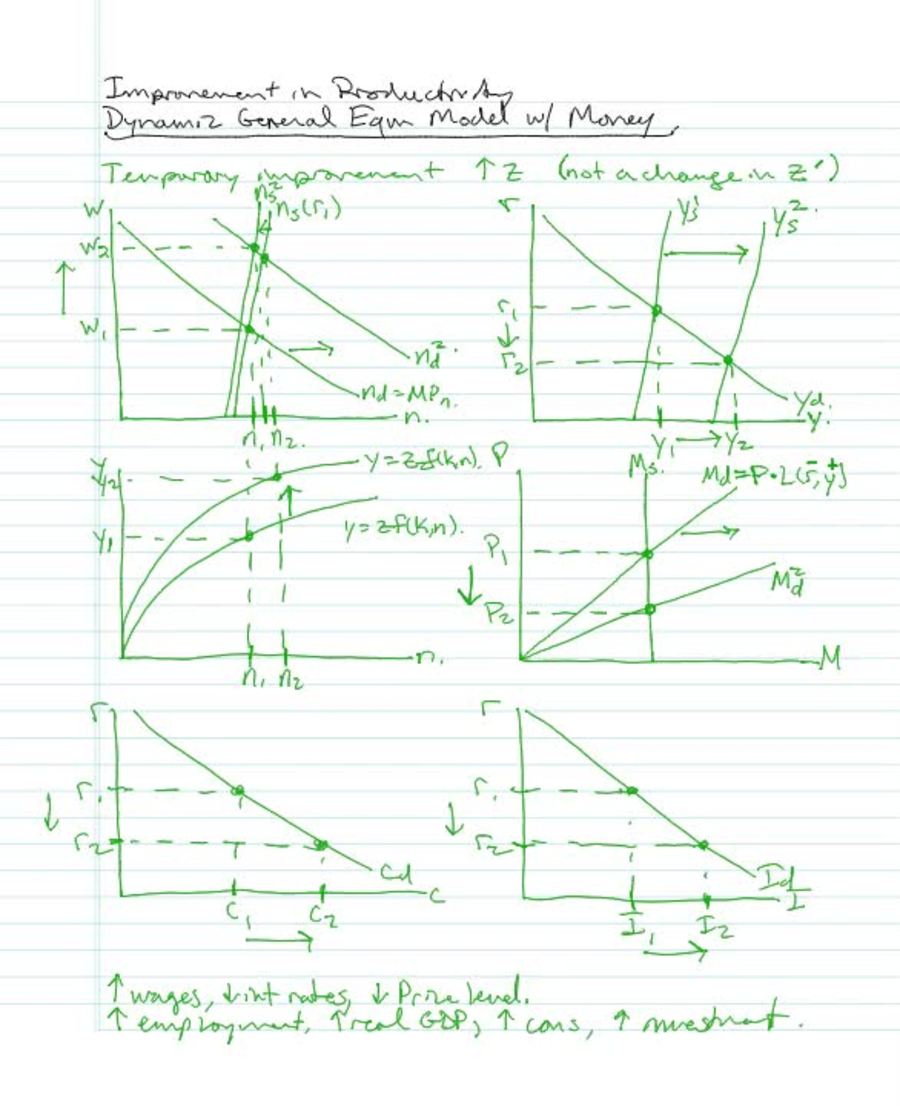 Improvement in Productivity
Dynamic General Eqm Model w/ Money
Temporary improvement ↑ z (not a change in z')
w
n_s^2
n_s(r_1)
w_2
w_1
n_d^2
n_d = MP_n
n.
n_1 n_2.
r
Y_s^1
Y_s^2
r_1
r_2
Y_d
Y.
Y_1 → Y_2
y_2
y_1
y = zf(k,n).
y = zf(k,n).
n.
n_1 n_2
P
M_s.
M_d = P·L(r̄, y⁺)
P_1
P_2
M_d^2
M
r
r_1
r_2
C_d
C
C_1 C_2
r
r_1
r_2
I_d
I
I_1 I_2
↑ wages, ↓ int rates, ↓ Price level.
↑ employment, ↑ real GDP, ↑ cons, ↑ investment.